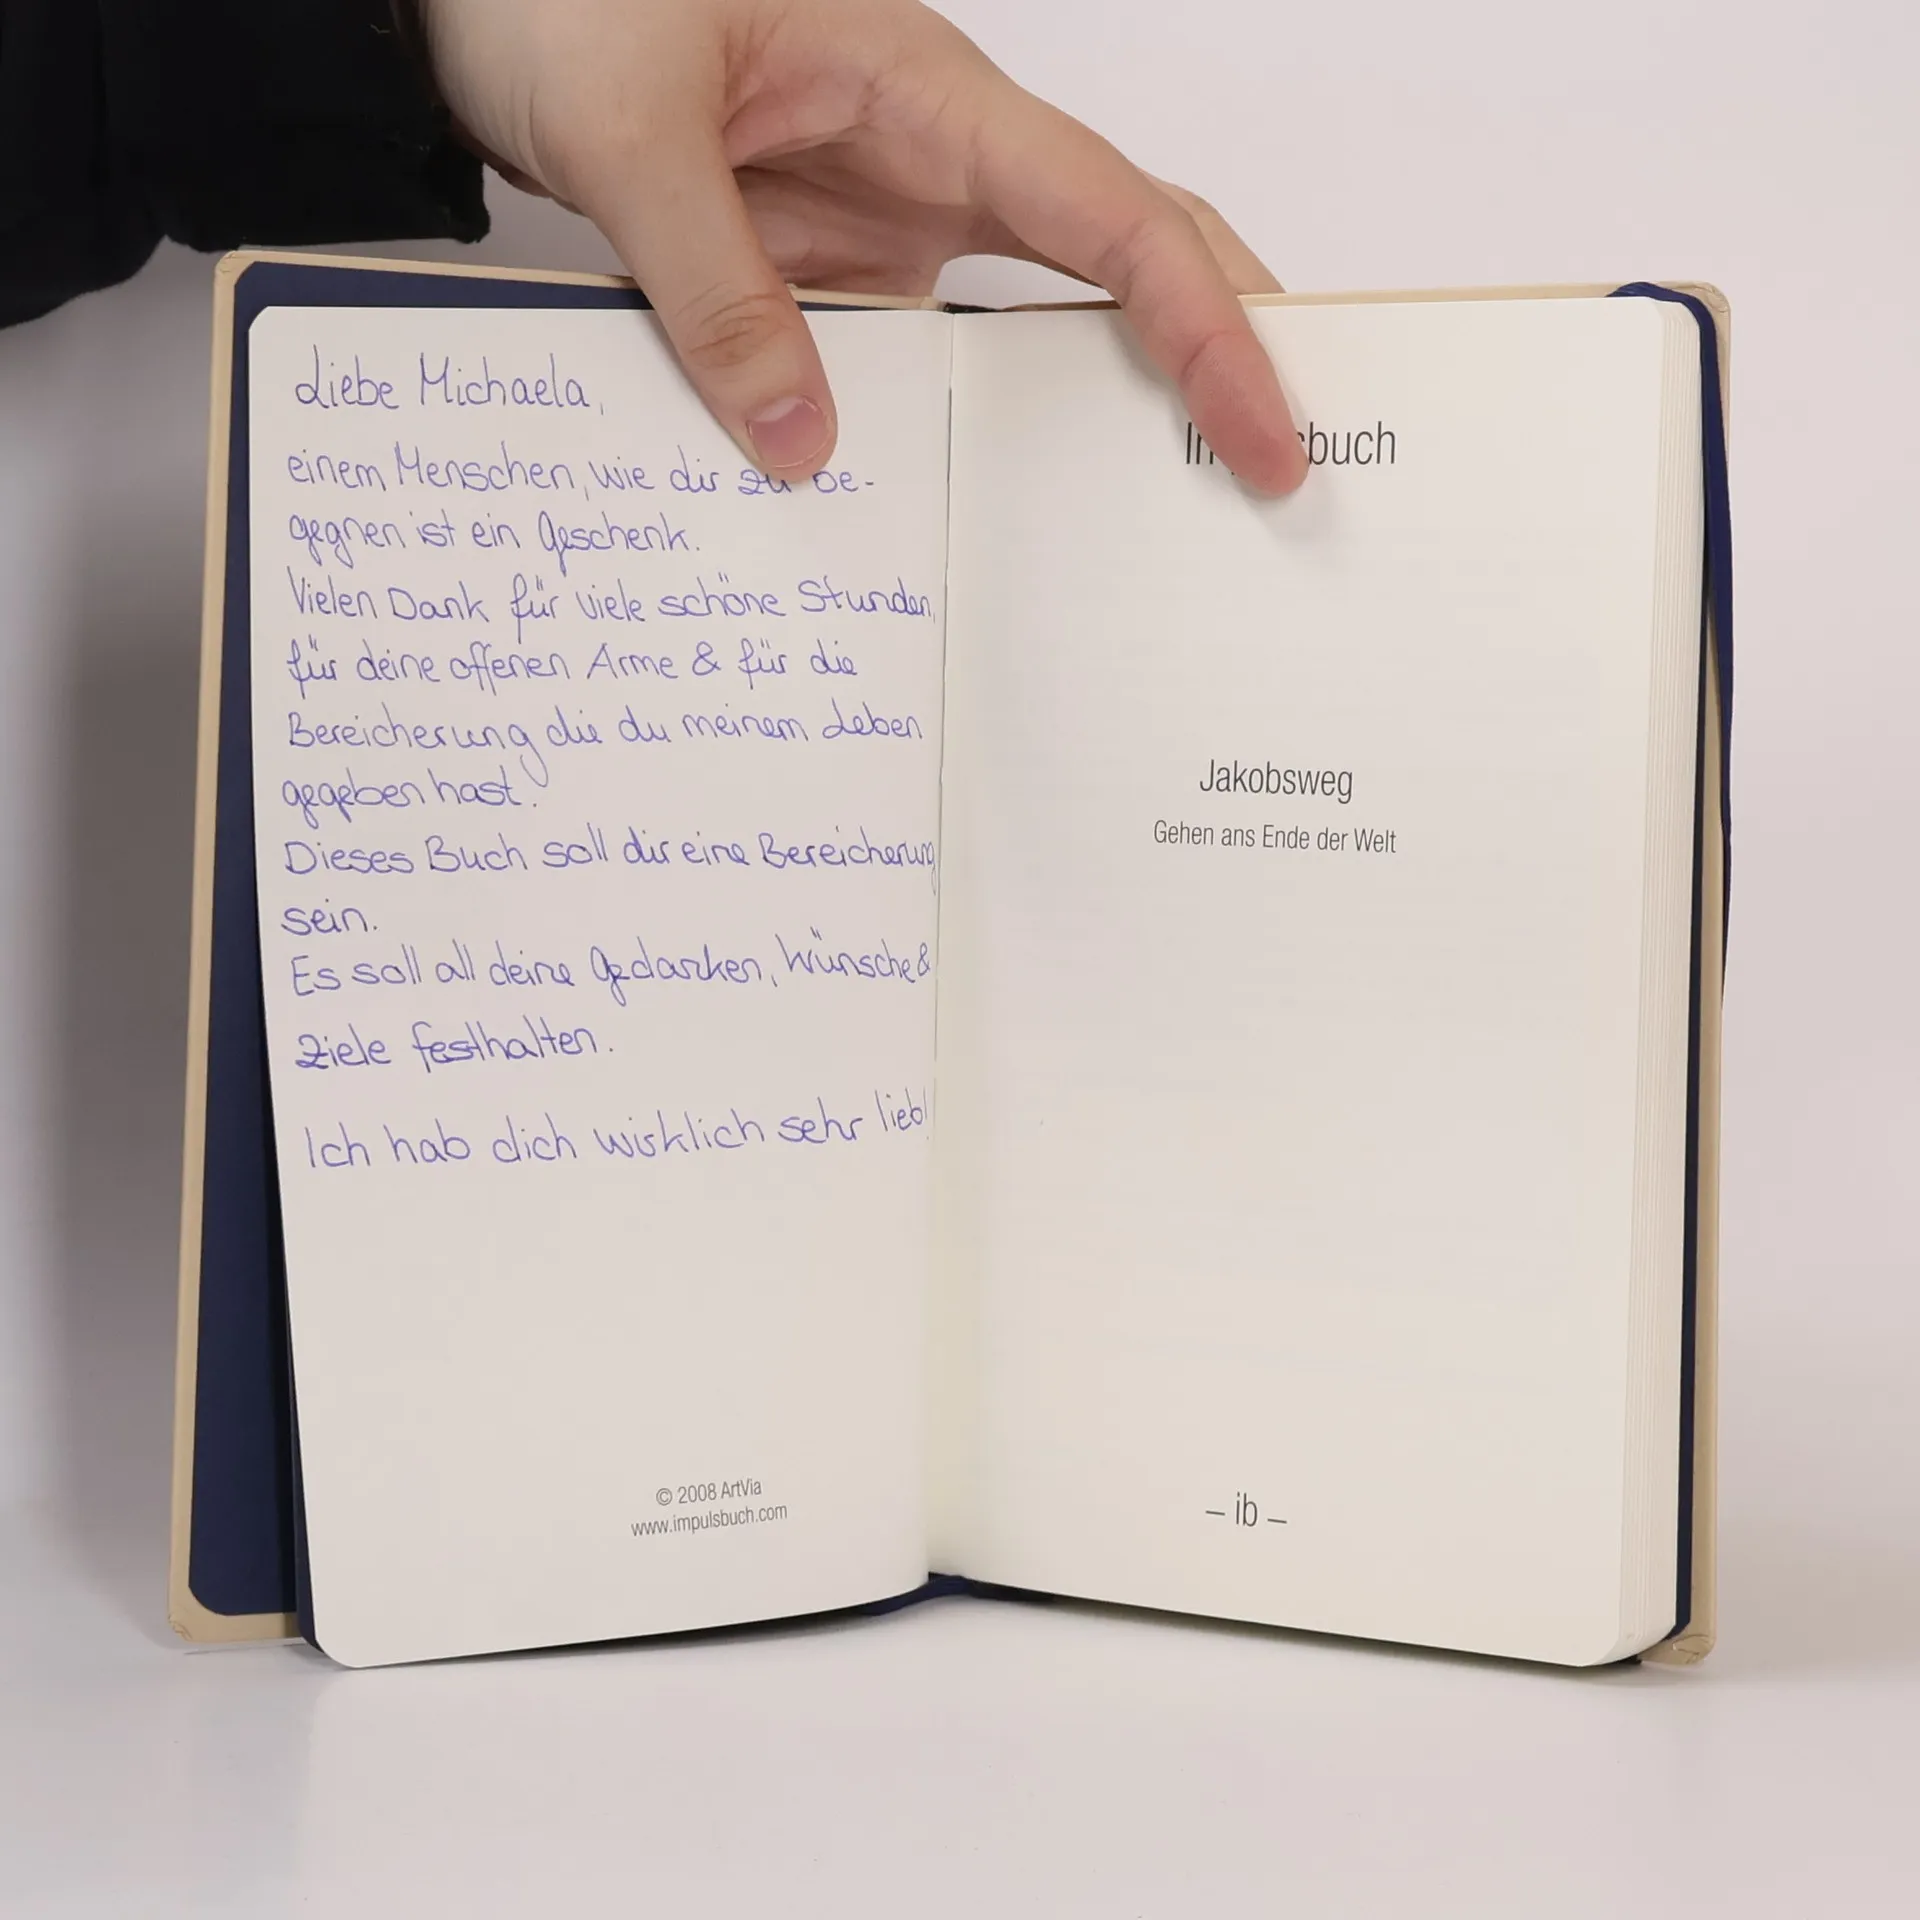 Liebe Michaela,
einem Menschen, wie dir zu be-
gegnen ist ein Geschenk.
Vielen Dank für viele schöne Stunden,
für deine offenen Arme & für die
Bereicherung die du meinem Leben
gegeben hast!
Dieses Buch soll dir eine Bereicherung
sein.
Es soll all deine Gedanken, Wünsche &
Ziele festhalten.
Ich hab dich wirklich sehr lieb!
© 2008 ArtVia
www.impulsbuch.com
Impulsbuch
Jakobsweg
Gehen ans Ende der Welt
– ib –